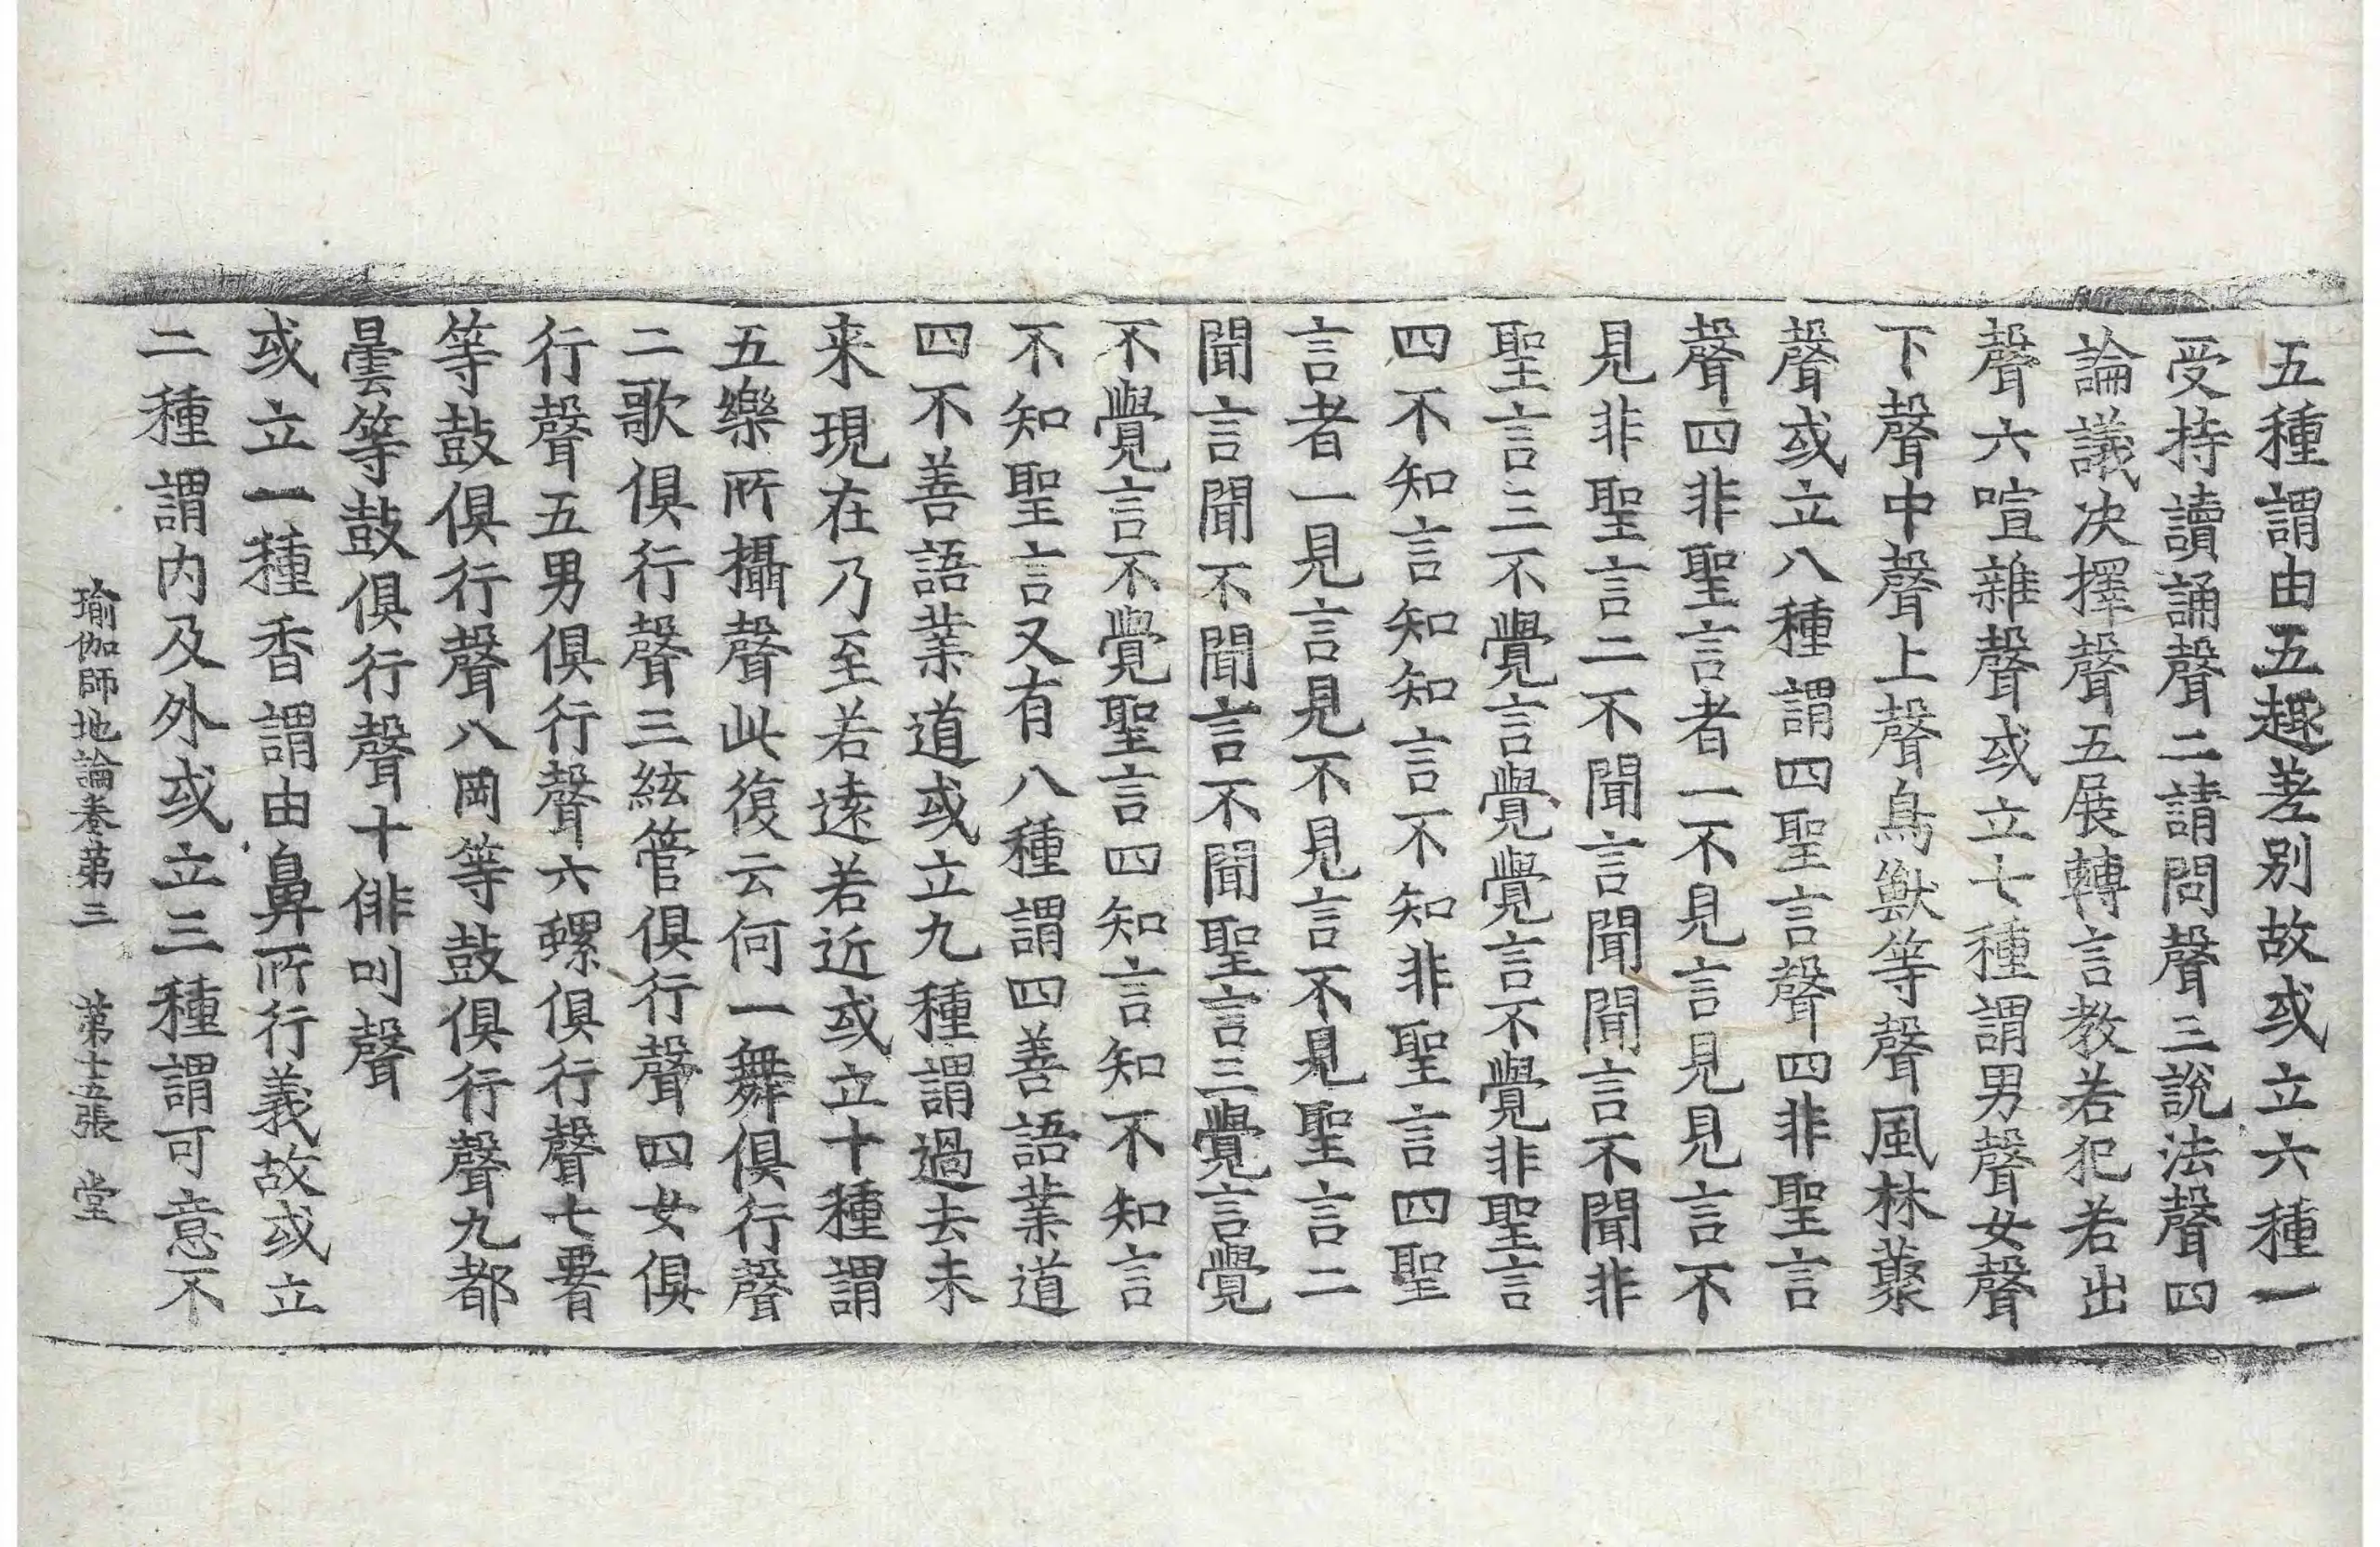 五種謂由五趣差别故或立六種一
受持讀誦聲二請問聲三說法聲四
論議决擇聲五展轉言教若犯若出
聲六喧雜聲或立七種謂男聲女聲
下聲中聲上聲鳥獸等聲風林藂
聲或立八種謂四聖言聲四非聖言
聲四非聖言者一不見言見見言不
見非聖言二不聞言聞聞言不聞非
聖言三不覺言覺覺言不覺非聖言
四不知言知知言不知非聖言四聖
言者一見言見不見言不見聖言二
聞言聞不聞言不聞聖言三覺言覺
不覺言不覺聖言四知言知不知言
不知聖言又有八種謂四善語業道
四不善語業道或立九種謂過去未
来現在乃至若遠若近或立十種謂
五樂所攝聲此復云何一舞俱行聲
二歌俱行聲三絃管俱行聲四女俱
行聲五男俱行聲六螺俱行聲七𦝫
等鼓俱行聲八岡等鼓俱行聲九都
曇等鼓俱行聲十俳叫聲
或立一種香謂由鼻所行義故或立
二種謂内及外或立三種謂可意不
瑜伽師地論卷第三 第十五張 堂